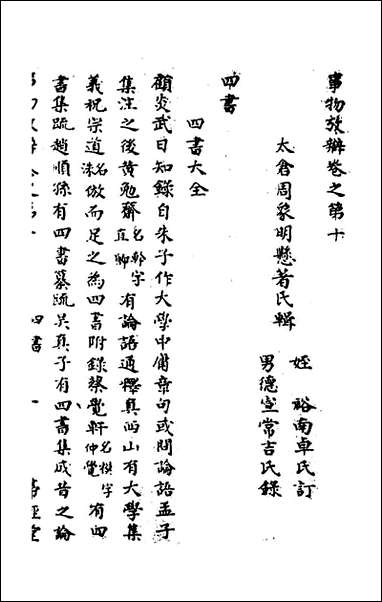 事物攷辨卷之第十
太倉周象明懸著氏輯
姪 裕南卓氏訂
男德宣常吉氏錄
四書
四書大全
顧炎武日知錄自朱子作大學中庸章句或問論語孟子
集注之後黃勉齋名榦字直卿有論語通釋真西山有大學集
義祝宗道名洙倣而足之為四書附錄蔡覺軒名模字仲覺有四
書集疏趙順孫有四書纂疏吳真子有四書集成昔之論
四書 一